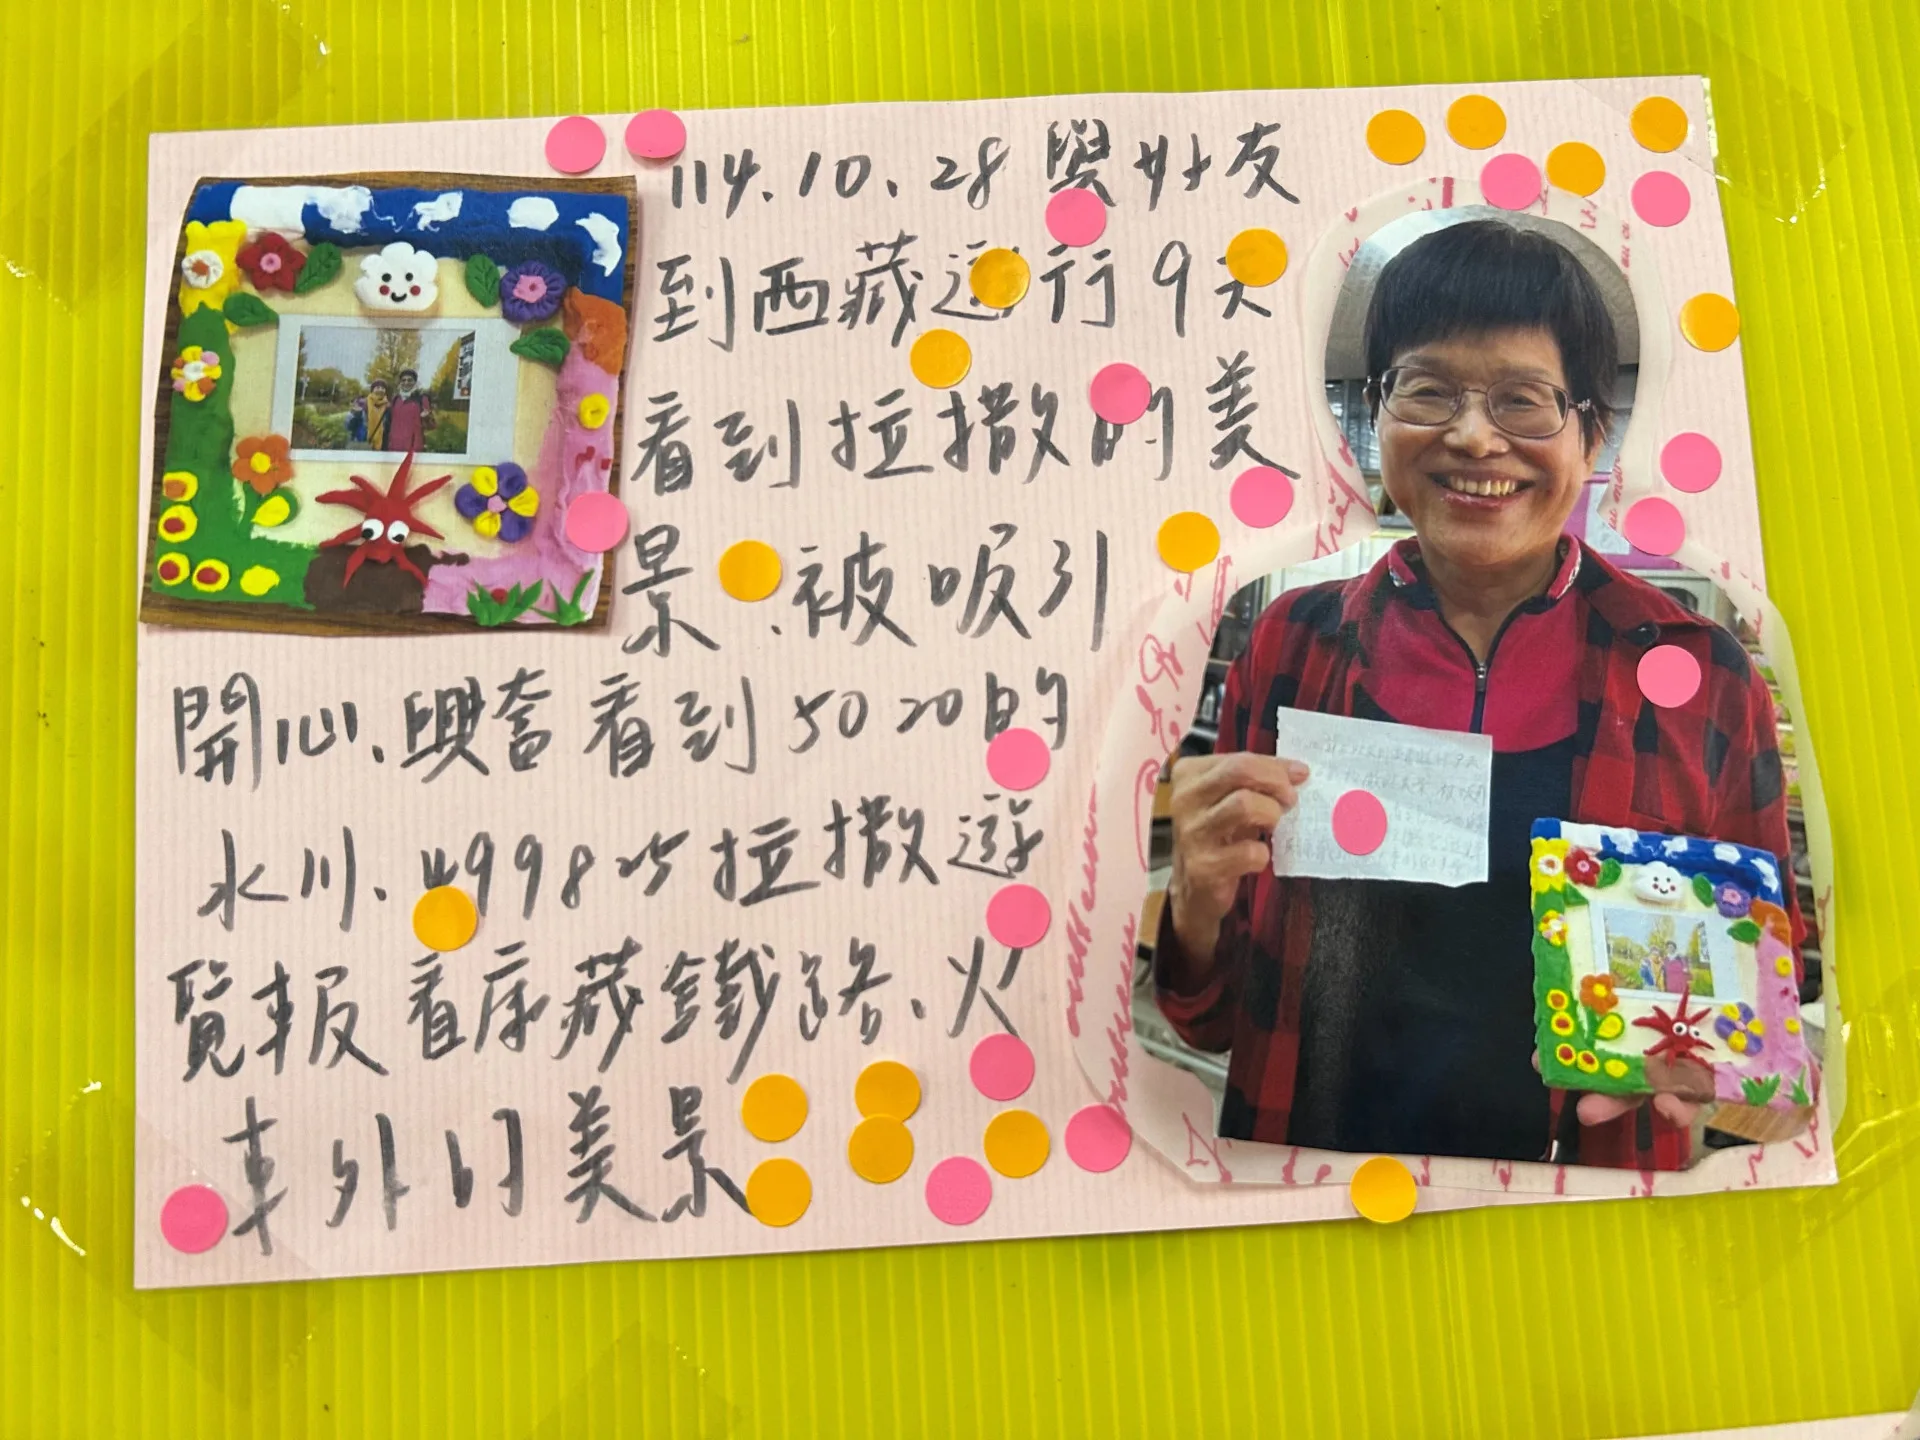 114.10.28 與好友
到西藏遊行9天
看到拉撒的美
景.被吸引
開心.興奮看到5020的
冰川.4998坐拉撒遊
覽車般看康藏鐵路、火
車外的美景